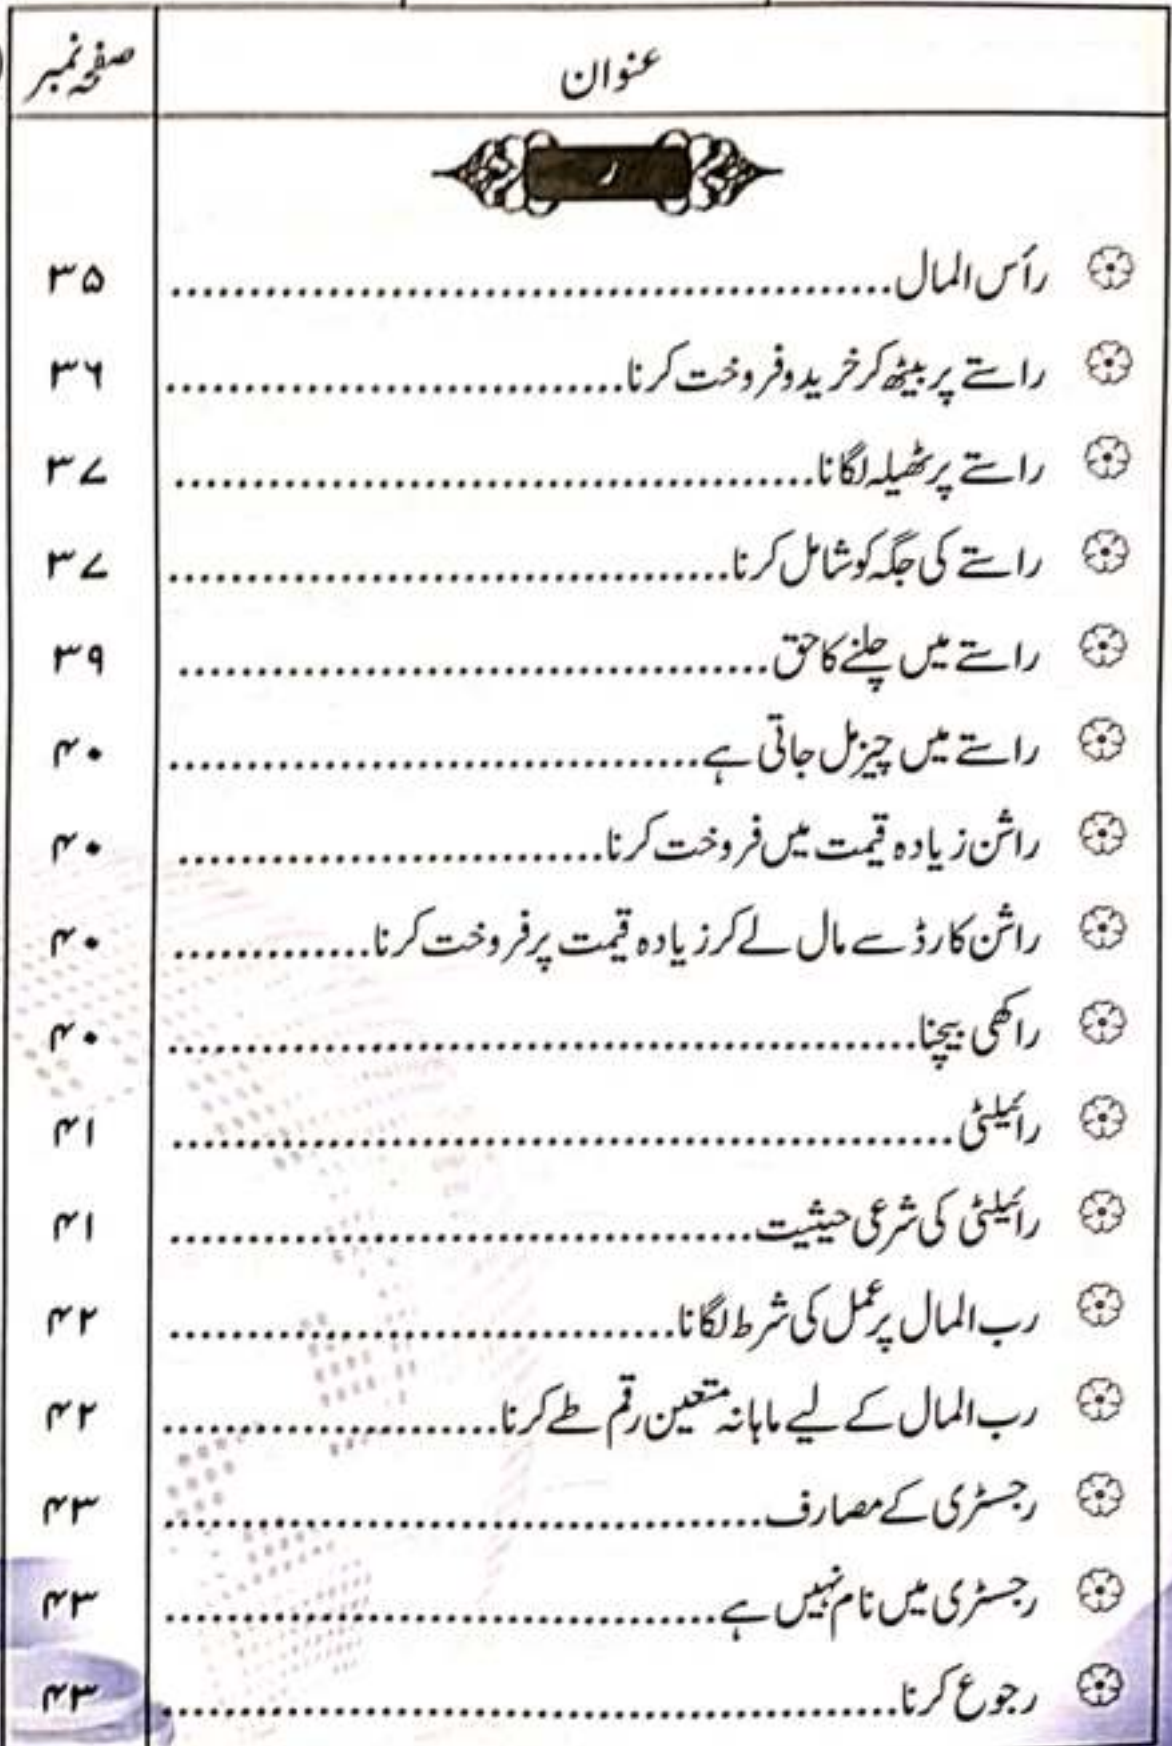 عنوان صفحہ نمبر
ر
رأس المال ۳۵
راستے پر بیٹھ کر خرید و فروخت کرنا ۳۶
راستے پر ٹھیلہ لگانا ۳۷
راستے کی جگہ کو شامل کرنا ۳۷
راستے میں چلنے کا حق ۳۹
راستے میں چیز مل جاتی ہے ۴۰
راشن زیادہ قیمت میں فروخت کرنا ۴۰
راشن کارڈ سے مال لے کر زیادہ قیمت پر فروخت کرنا ۴۰
راکھی بیچنا ۴۰
رائیلٹی ۴۱
رائیلٹی کی شرعی حیثیت ۴۱
رب المال پر عمل کی شرط لگانا ۴۲
رب المال کے لیے ماہانہ متعین رقم طے کرنا ۴۲
رجسٹری کے مصارف ۴۳
رجسٹری میں نام نہیں ہے ۴۳
رجوع کرنا ۴۳